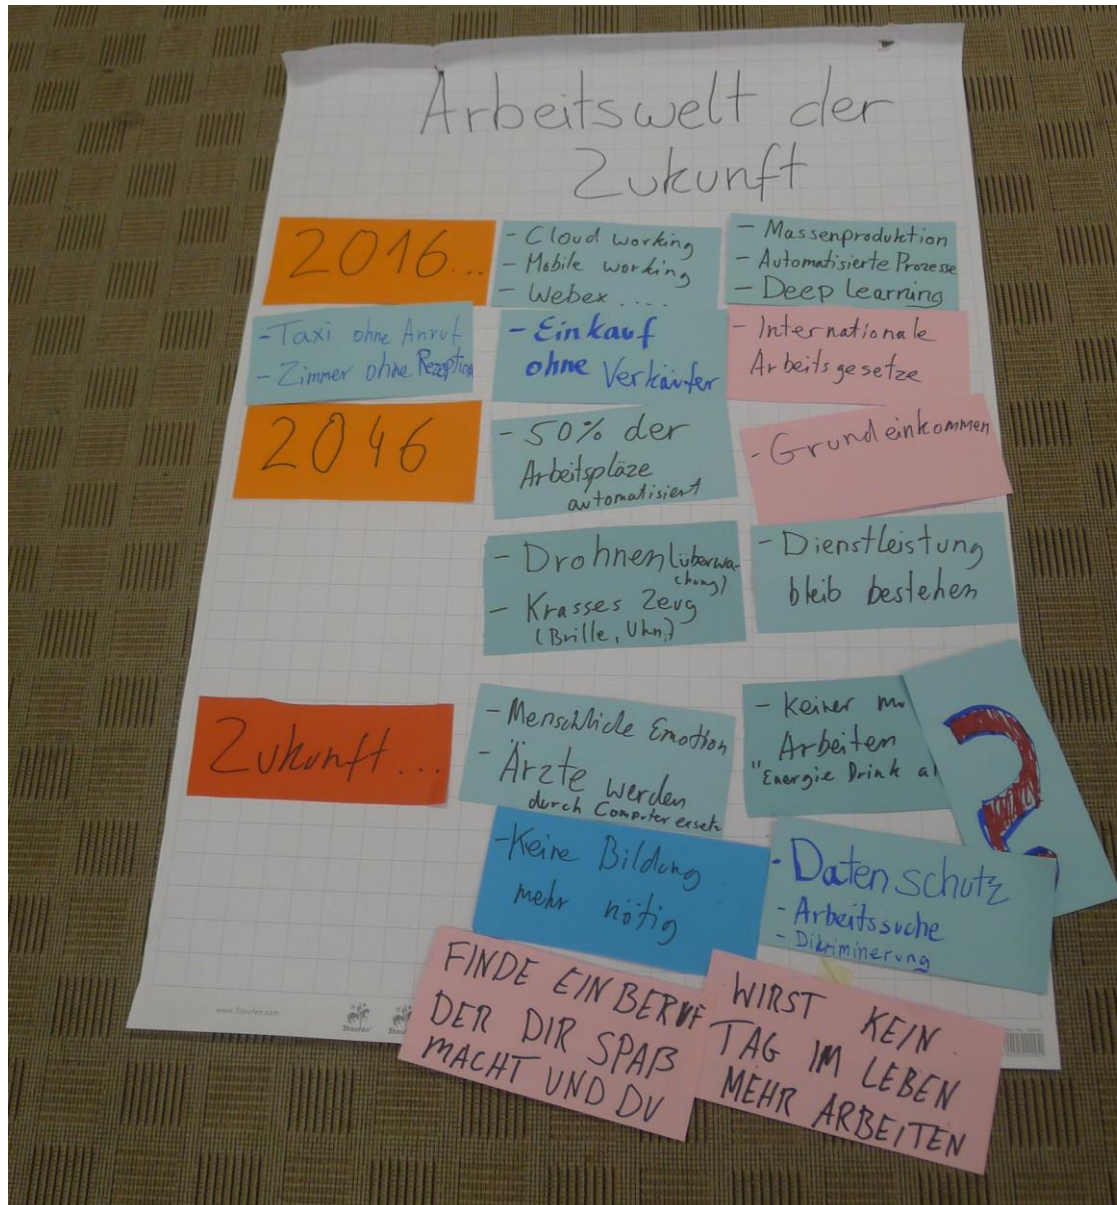 Arbeitswelt der
Zukunft
2016...
- Cloud working
- Mobile working
- Webex ....
- Massenproduktion
- Automatisierte Prozesse
- Deep learning
- Taxi ohne Anruf
- Zimmer ohne Rezeption
- Einkauf
ohne Verkäufer
- Internationale
Arbeitsgesetze
2046
- 50% der
Arbeitspläze
automatisiert
- Grundeinkommen
- Drohnen (überwa-
chung)
- Krasses Zeug
(Brille, Uhr,)
- Dienstleistung
bleib bestehen
Zukunft...
- Menschliche Emotion
- Ärzte werden
durch Computer ersetz
- Keiner
Arbeiten
"Energie Drink
?
- Keine Bildung
mehr nötig
- Datenschutz
- Arbeitssuche
- Dikriminerung
FINDE EIN BERUF
DER DIR SPAß
MACHT UND DU
WIRST KEIN
TAG IM LEBEN
MEHR ARBEITEN
www.Staufen.com
Staufen